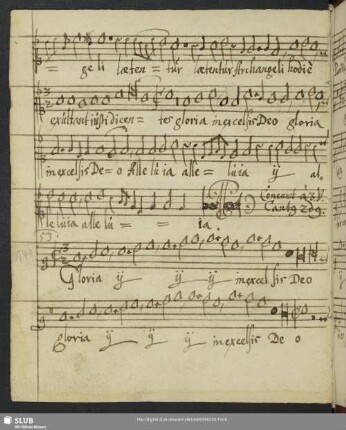 = ge li læten = tur lætentur Archangeli hodiè
exultant iusti dicen = tes gloria in excelsis Deo gloria
in excelsis De = o Alle lu ia alle = luia ij al=
le luia alle lu = = ia.
Concent à 3 V.
Cantg 2dg.
Gloria ij ij ij in excelsis Deo
gloria ij ij ij in excelsis De o
SLUB
Wir führen Wissen.